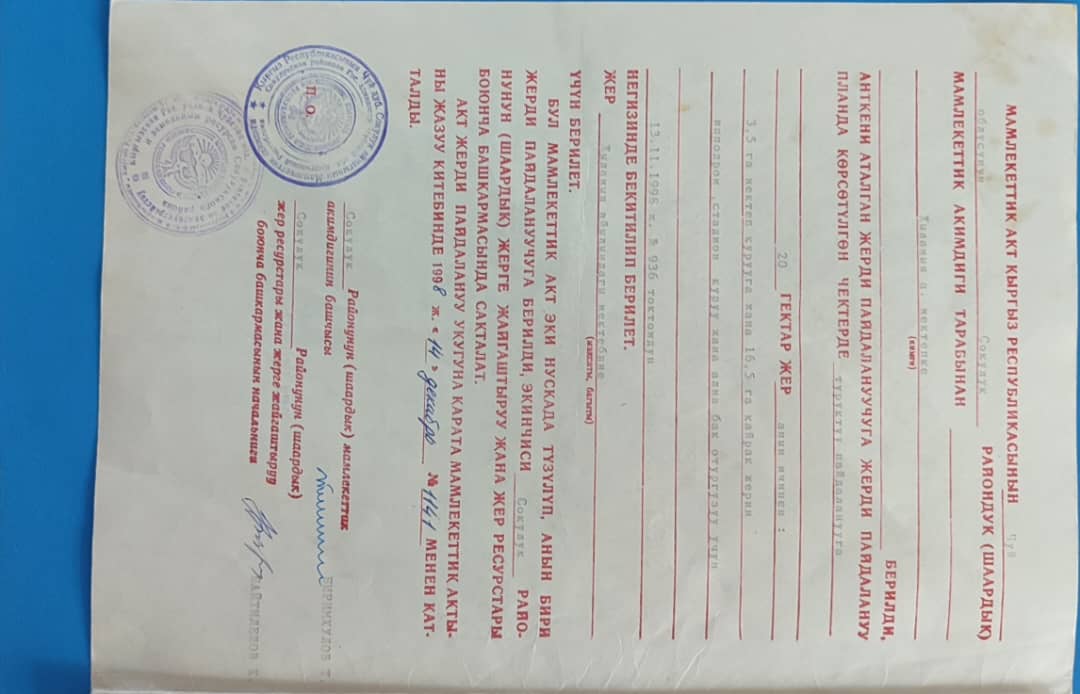 МАМЛЕКЕТТИК АКТ КЫРГЫЗ РЕСПУБЛИКАСЫНЫН Чүй
областунун Сокулук РАЙОНДУК (ШААРДЫК)
МАМЛЕКЕТТИК АКИМДИГИ ТАРАБЫНАН
а. мектепке
(кимге)
БЕРИЛДИ,
АНТКЕНИ АТАЛГАН ЖЕРДИ ПАЙДАЛАНУУЧУГА ЖЕРДИ ПАЙДАЛАНУУ
ПЛАНДА КӨРСӨТҮЛГӨН ЧЕКТЕРДЕ туруктуу пайдаланууга
20 ГЕКТАР ЖЕР анын ичинен :
3,5 га мектеп курууга жана 16,5 га кайрак жерин
ипподром ,стадион куруу жана алма бак отургузуу үчүн
13.11.1998 ж. № 936 токтомдун
НЕГИЗИНДЕ БЕКИТИЛИП БЕРИЛЕТ.
ЖЕР айылындагы мектебине
(максаты, багыты)
ҮЧҮН БЕРИЛЕТ.
БУЛ МАМЛЕКЕТТИК АКТ ЭКИ НУСКАДА ТҮЗҮЛҮП, АНЫН БИРИ
ЖЕРДИ ПАЙДАЛАНУУЧУГА БЕРИЛДИ, ЭКИНЧИСИ Сокулук РАЙО-
НУНУН (ШААРДЫК) ЖЕРГЕ ЖАЙГАШТЫРУУ ЖАНА ЖЕР РЕСУРСТАРЫ
БОЮНЧА БАШКАРМАСЫНДА САКТАЛАТ.
АКТ ЖЕРДИ ПАЙДАЛАНУУ УКУГУНА КАРАТА МАМЛЕКЕТТИК АКТЫ-
НЫ ЖАЗУУ КИТЕБИНДЕ 1998 ж. «14» декабрь № 1141 МЕНЕН КАТ-
ТАЛДЫ.
Сокулук Районунун (шаардык) мамлекеттик
акимдигинин башчысы
П. О.
Сокулук Районунун (шаардык)
жер ресурстары жана жерге жайгаштыруу
боюнча башкармасынын начальниги